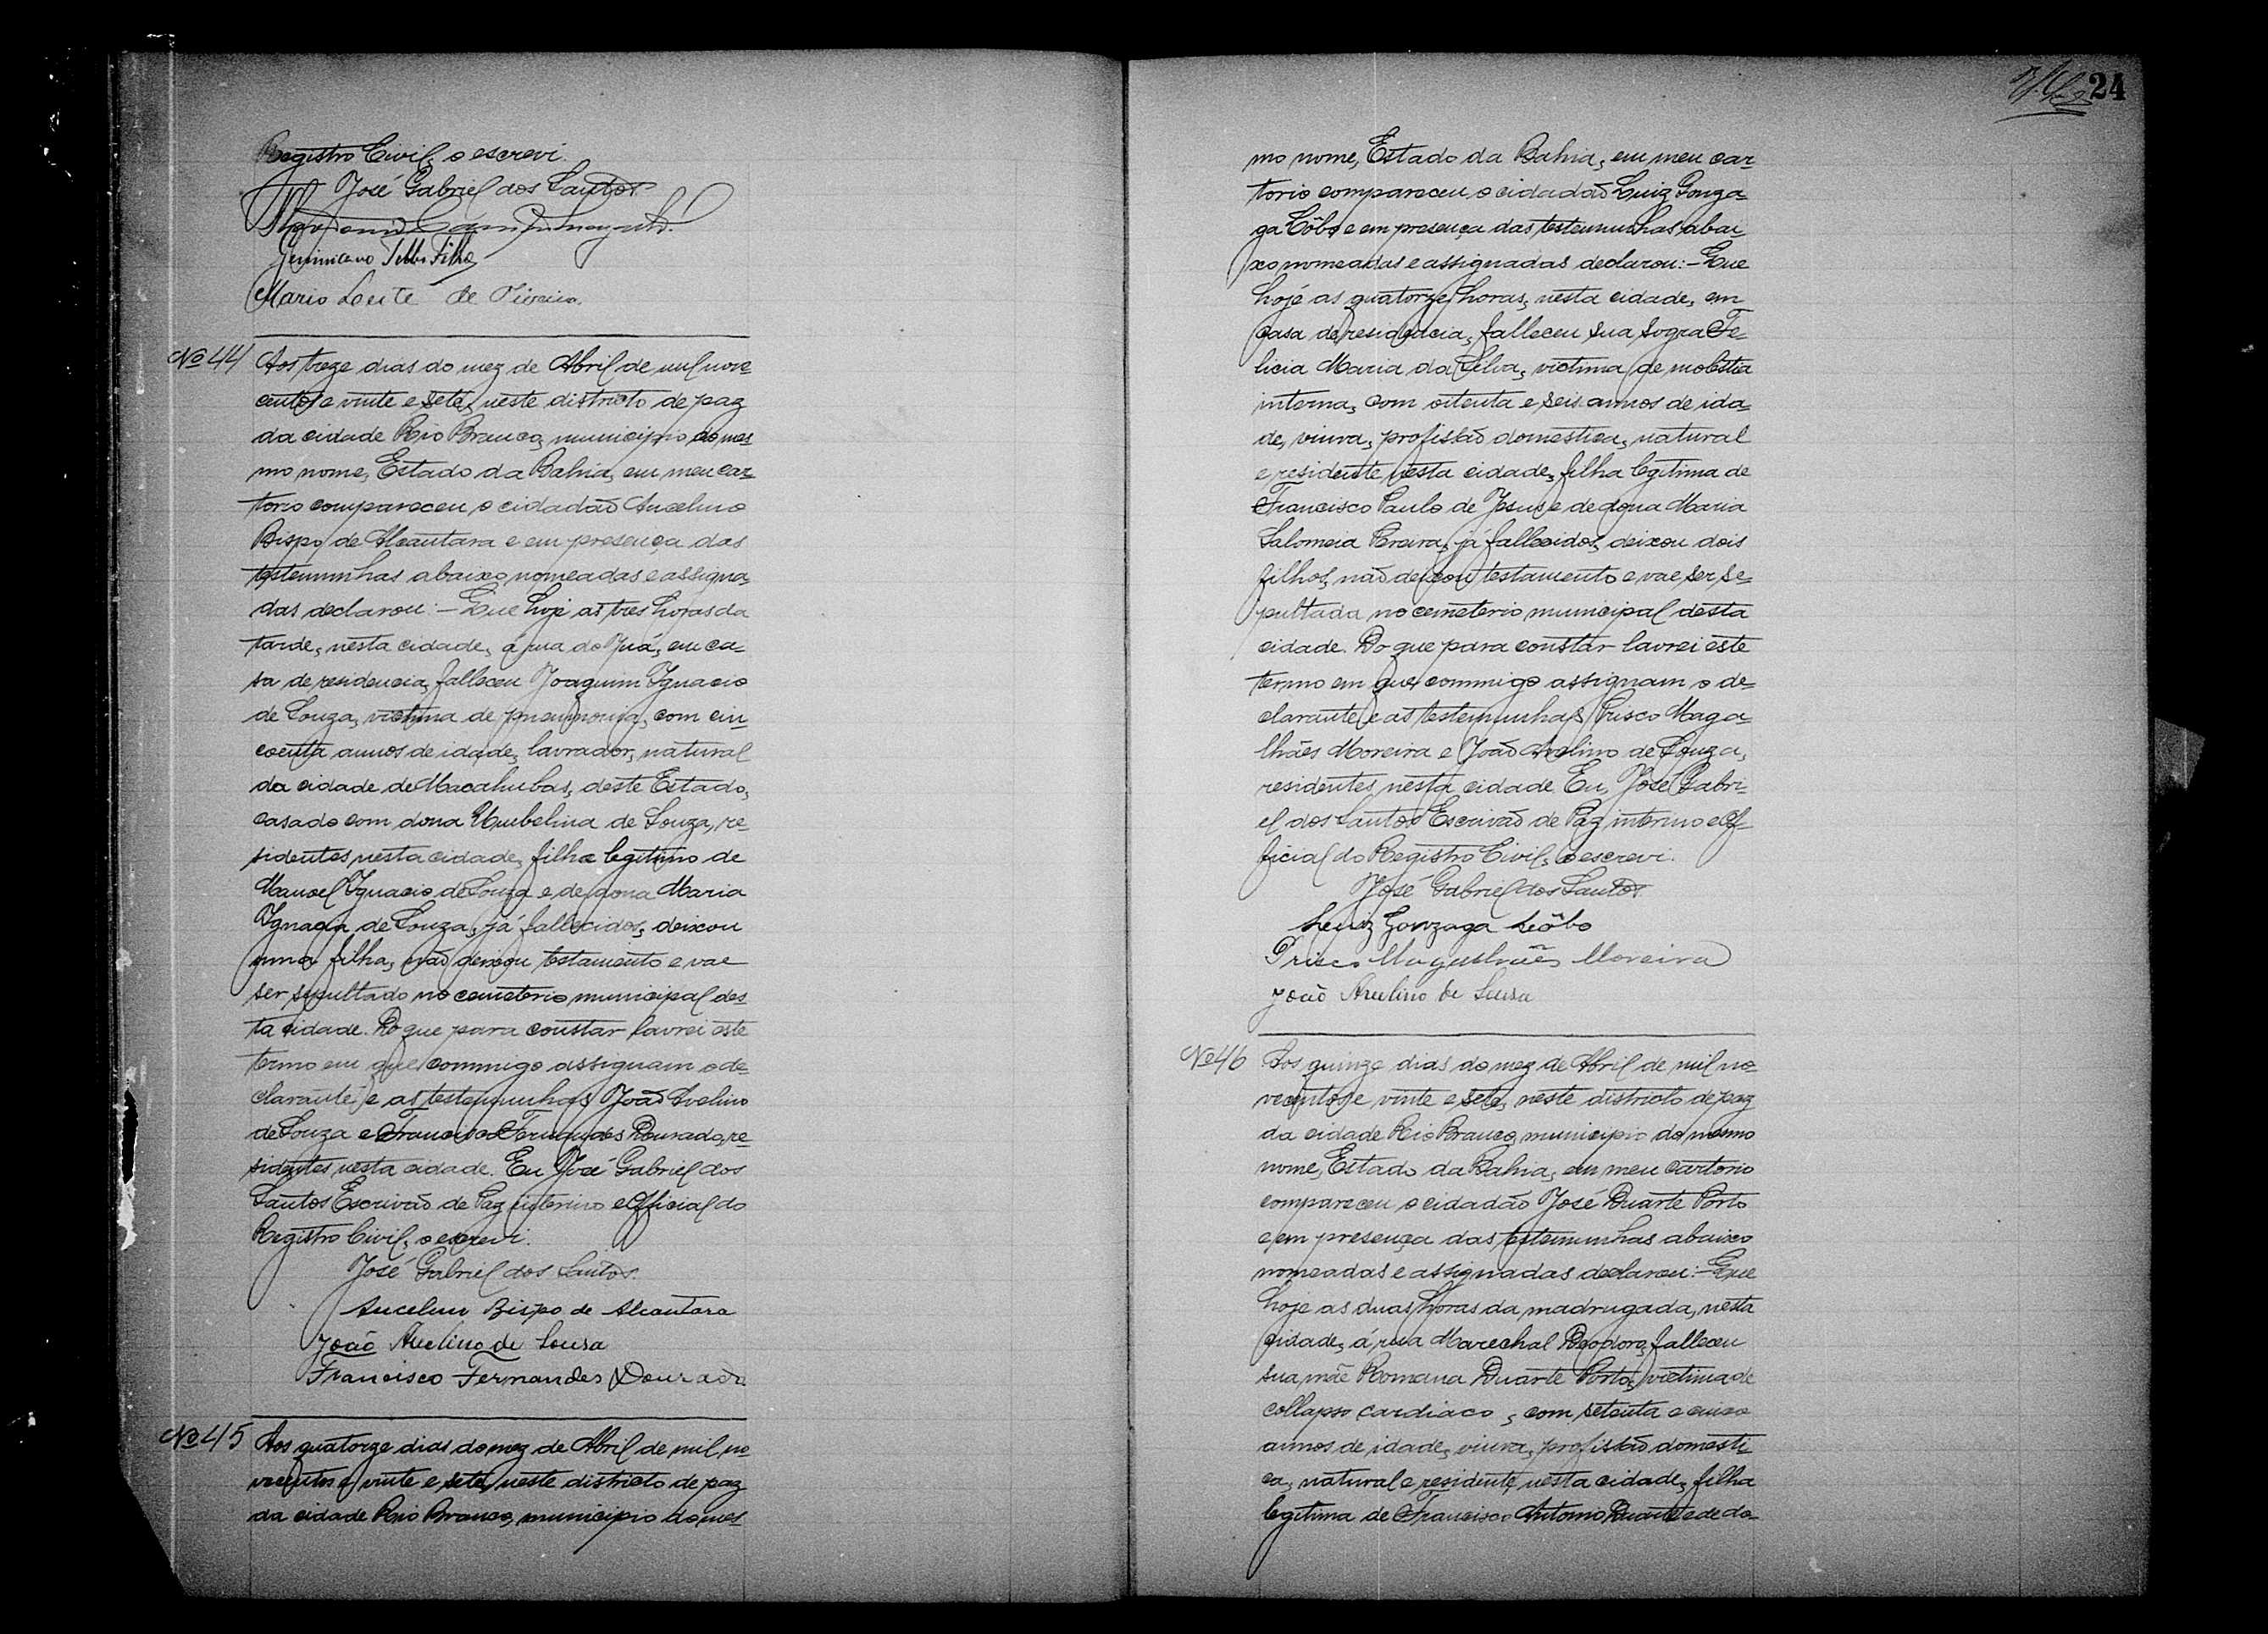 Registro Civil, o escrevi.
José Gabriel dos Santos
Mario Leite de Oliveira.
Nº 44
Aos treze dias do mez de Abril de mil nove
centos e vinte e sete, neste districto de paz
da cidade Rio Branco, municipio do mes
mo nome, Estado da Bahia, em meu car-
torio compareceu o cidadão Ancelmo
Bispo de Alcantara e em presença das
testemunhas abaixo nomeadas e assigna
das declarou: – Que hoje as tres horas da
tarde, nesta cidade, á rua do Juá, em ca-
sa de residencia, falleceu Joaquim Ignacio
de Souza, victima de pneumonia, com cin-
coenta annos de idade, lavrador, natural
da cidade de Macahubas, deste Estado,
casado com dona Umbelina de Souza, re-
sidentes nesta cidade, filho legitimo de
Manoel Ignacio de Souza e de dona Maria
Ignacia de Souza, já fallecidos, deixou
uma filha, não deixou testamento e vae
ser sepultado no cemeterio municipal des-
ta cidade. Do que para constar lavrei este
termo em que commigo assignam o de-
clarante e as testemunhas João Avelino
de Souza e Francisco Fernandes Dourado, re-
sidentes nesta cidade. Eu, José Gabriel dos
Santos Escrivão de Paz interino e Official do
Registro Civil, o escrevi.
José Gabriel dos Santos.
Ancelmo Bispo de Alcantara
João Avelino de Sousa
Francisco Fernandes Dourado.
Nº 45
Aos quatorze dias do mez de Abril de mil no
vecentos e vinte e sete, neste districto de paz
da cidade Rio Branco, municipio do mes-
24
mo nome, Estado da Bahia, em meu car-
torio compareceu o cidadão Luiz Gonza-
ga Lôbo e em presença das testemunhas abai-
xo nomeadas e assignadas declarou: – Que
hoje as quatorze horas, nesta cidade, em
casa de residencia, falleceu sua sogra Fe-
licia Maria da Silva, victima de molestia
interna, com oitenta e seis annos de ida-
de, viuva, profissão domestica, natural
e residente nesta cidade, filha legitima de
Francisco Paulo de Jesus e de dona Maria
Salomeia Pereira, já fallecidos, deixou dois
filhos, não deixou testamento e vae ser se-
pultada no cemeterio municipal desta
cidade. Do que para constar lavrei este
termo em que commigo assignam o de-
clarante e as testemunhas Prisco Maga-
lhães Moreira e João Avelino de Souza,
residentes nesta cidade Eu, José Gabri-
el dos Santos Escrivão de Paz interino e Of-
ficial do Registro Civil, o escrevi.
José Gabriel dos Santos.
Luiz Gonzaga Lôbo
Prisco Magalhães Moreira
João Avelino de Sousa
Nº 46
Aos quinze dias do mez de Abril de mil no-
vecentos e vinte e sete, neste districto de paz
da cidade Rio Branco, municipio do mesmo
nome, Estado da Bahia, em meu cartorio
compareceu o cidadão José Duarte Porto
e em presença das testemunhas abaixo
nomeadas e assignadas declarou: – Que
hoje as duas horas da madrugada, nesta
cidade, á rua Marechal Deodoro, falleceu
sua mãe Romana Duarte Porto, victima de
collapso cardiaco, com setenta e cinco
annos de idade, viuva, profissão domesti
ca, natural e residente nesta cidade, filha
legitima de Francisco Antonio Duarte e de do-